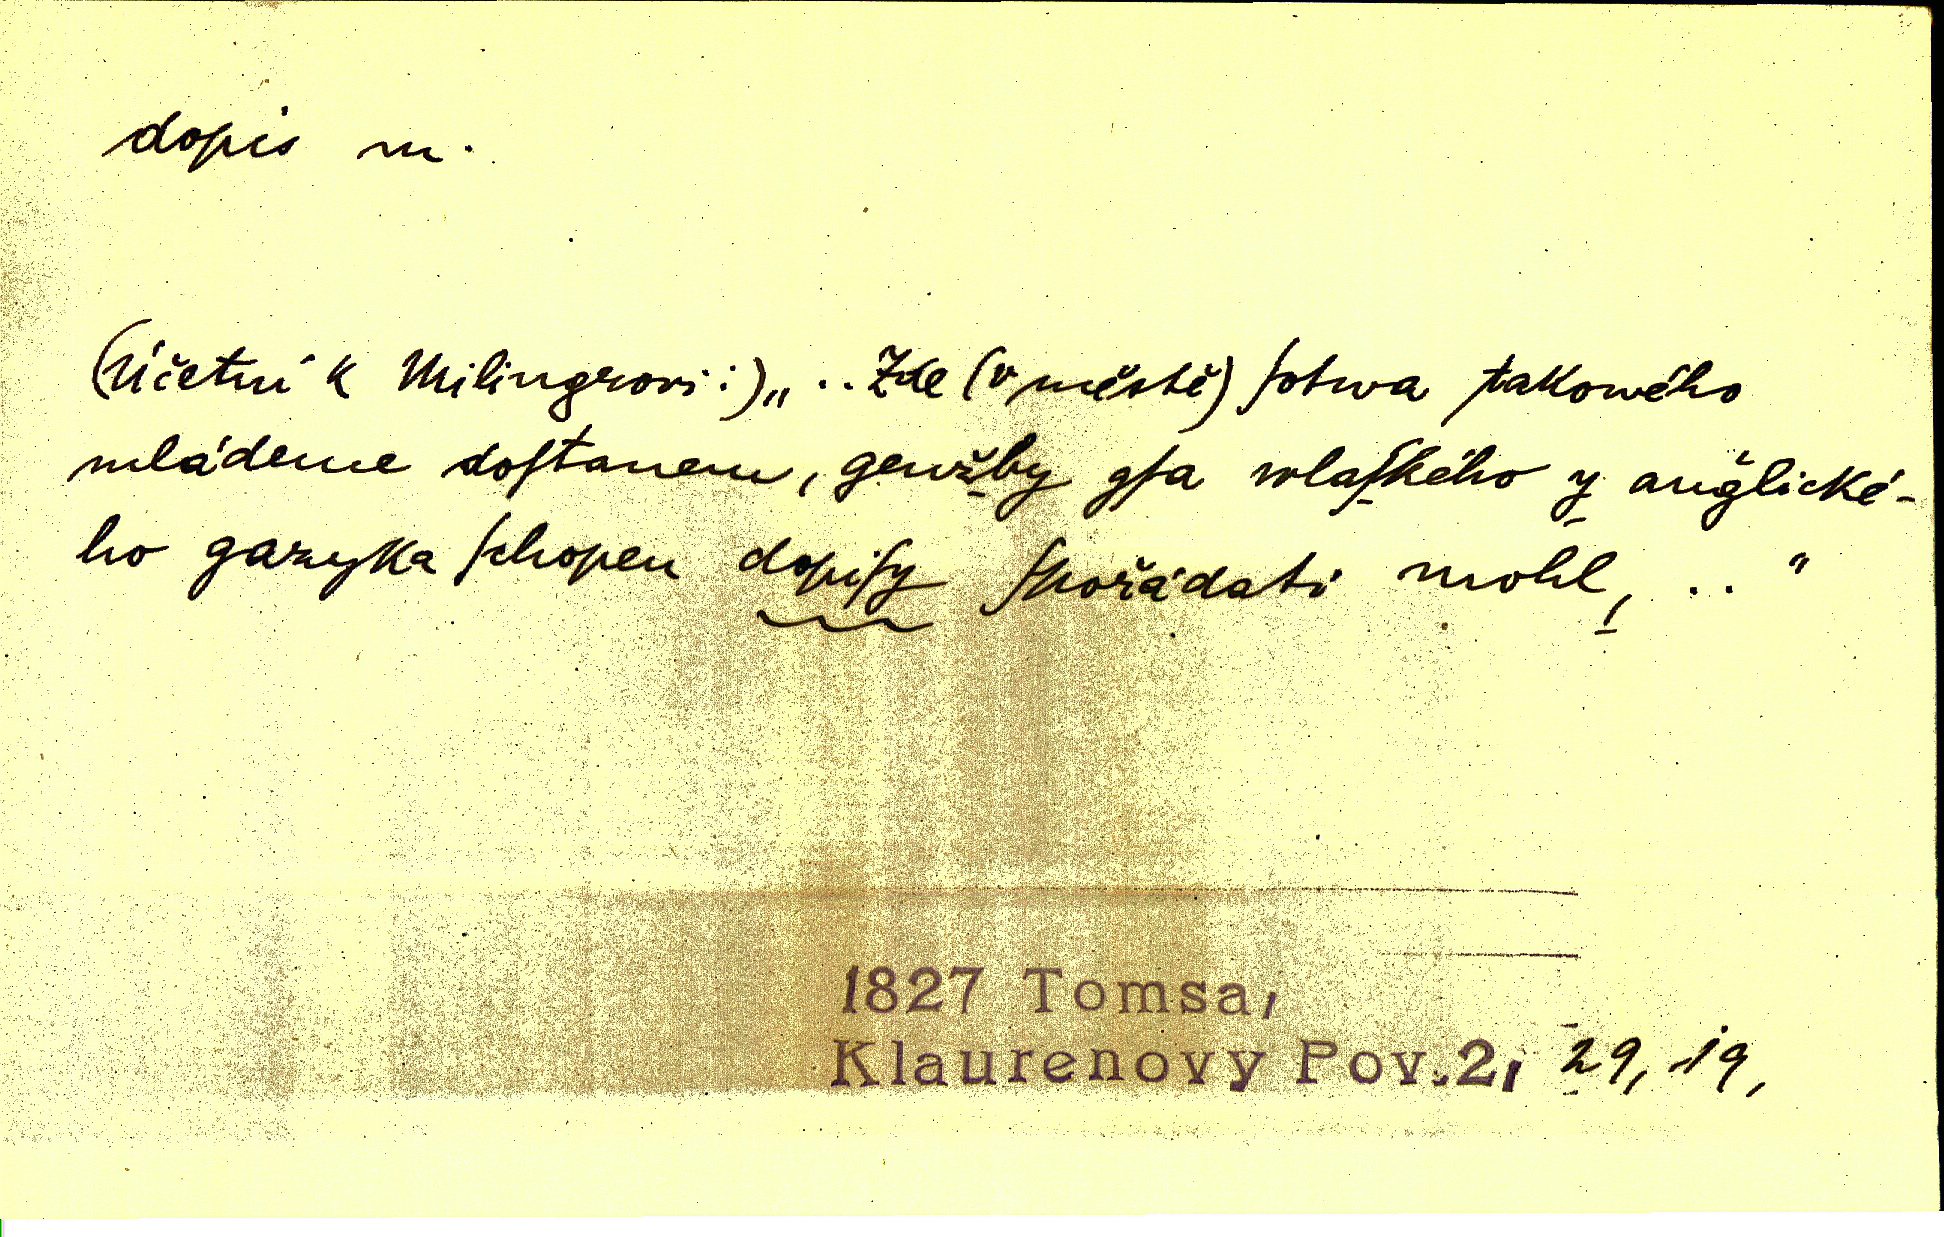 dopis m.
(Účetní k Milingrovi:)„ ..Zde (v městě) ſotwa takowého
mládence doſtanem, genžby gſa wlaſkého y anğlické-
ho gazyka ſchopen dopiſy ſpořádati mohl, .. "
1827 Tomsa,
Klaurenovy Pov.2, 29, 19,